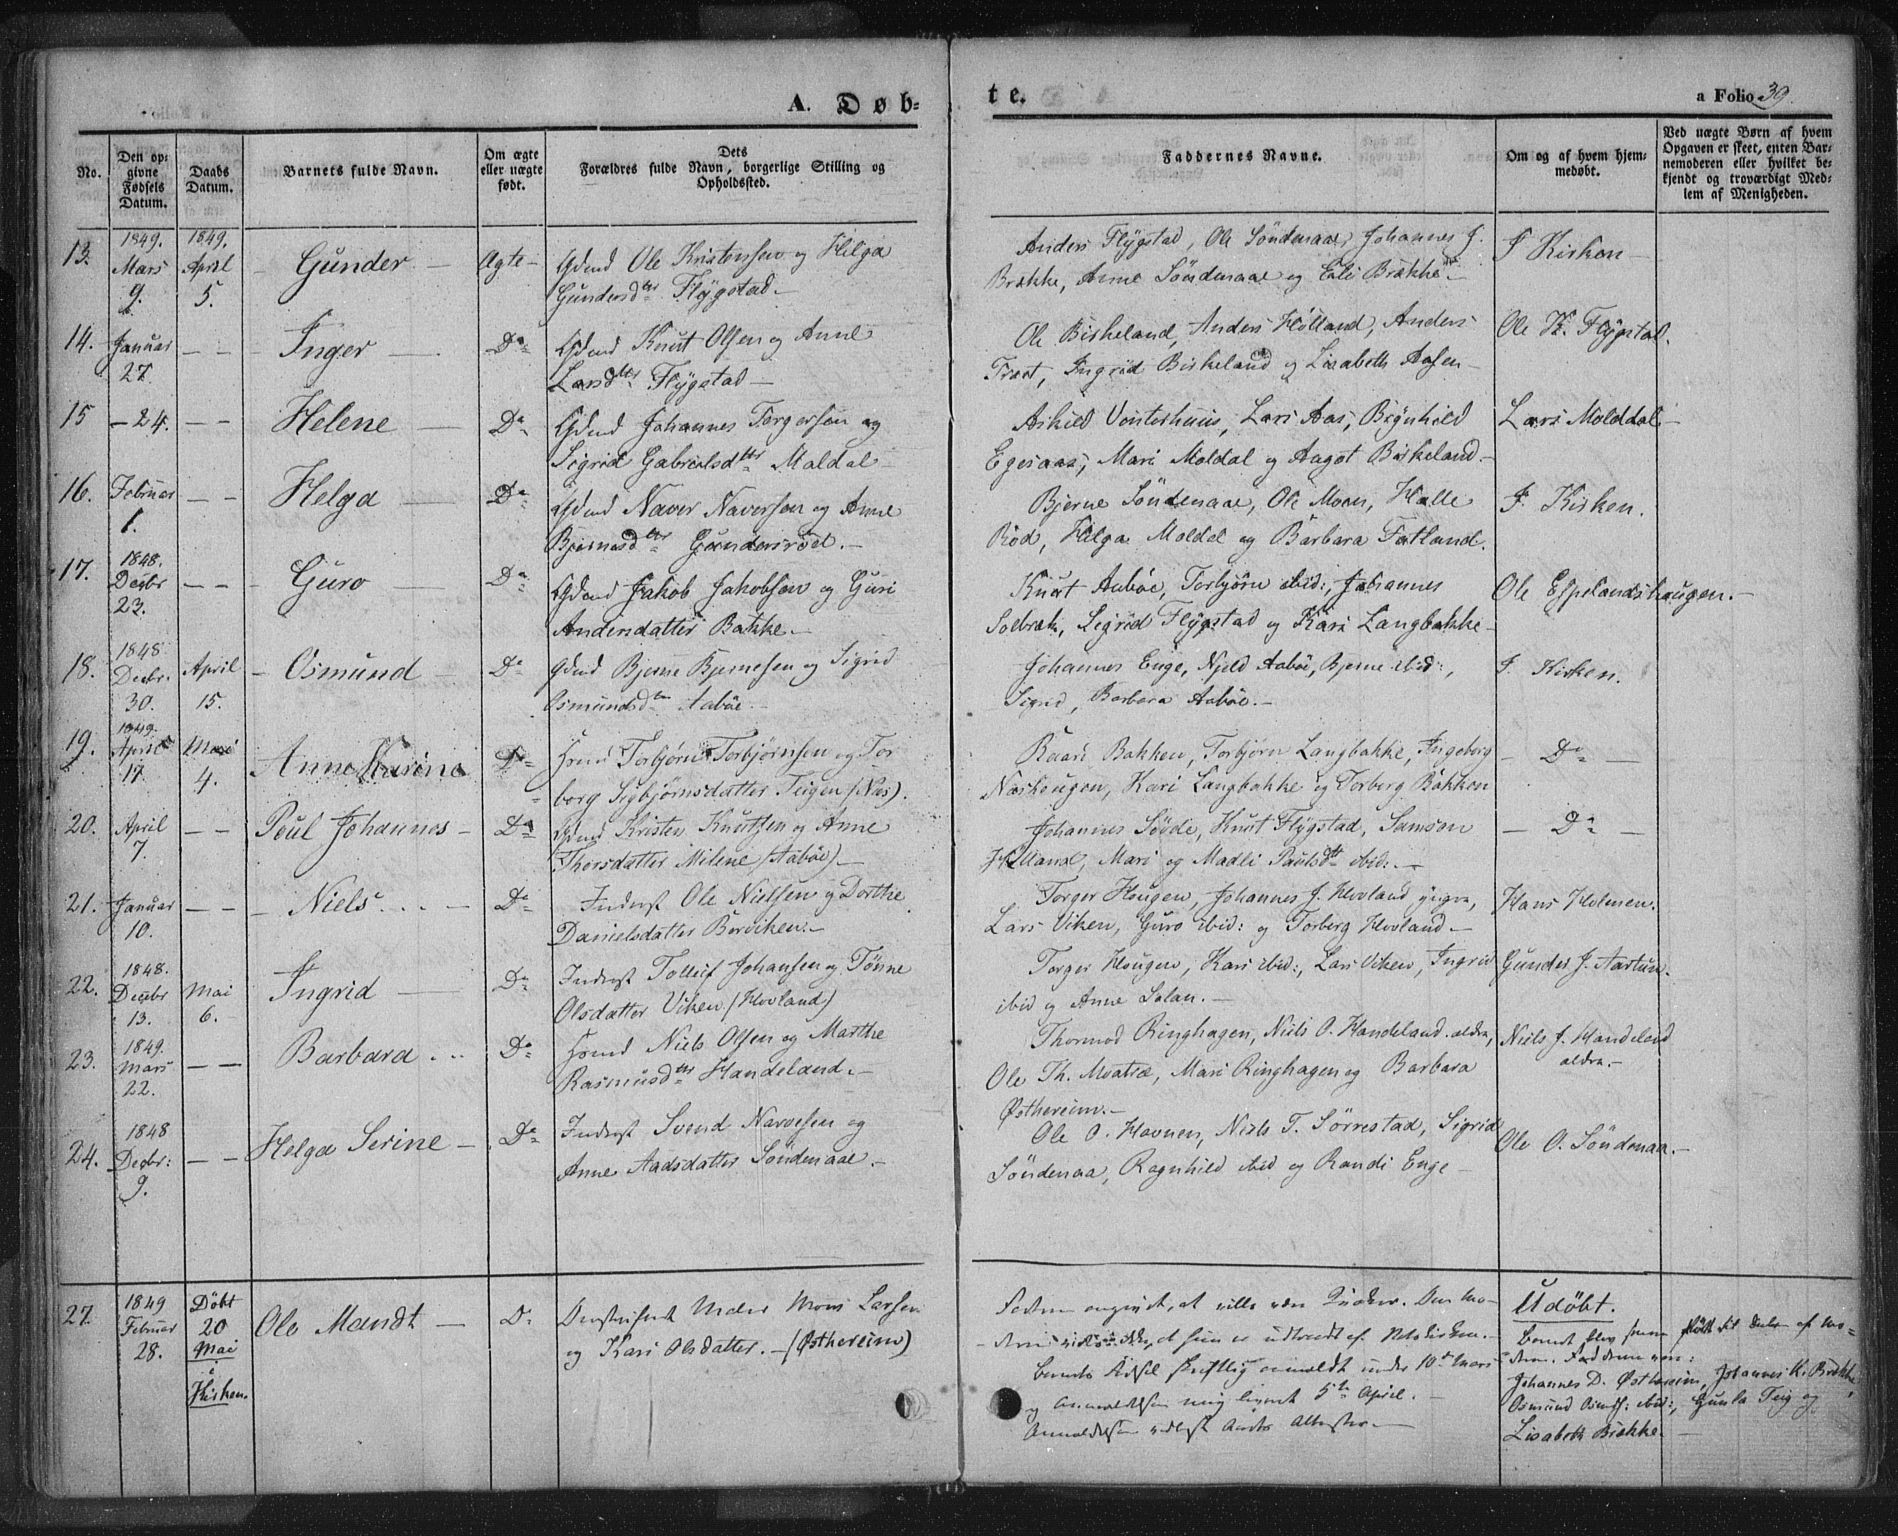 A. Døb-
te.
a Folio 39.
No.
Den op-
givne
Fødsels
Datum.
Daabs
Datum.
Barnets fulde Navn.
Om ægte
eller uægte
født.
Dets
Forældres fulde Navn, borgerlige Stilling og
Opholdssted.
Faddernes Navne.
Om og af hvem hjem-
medøbt.
Ved uægte Børn af hvem
Opgaven er skeet, enten Bar-
nemoderen eller hvilket be-
kjendt og troværdigt Med-
lem af Menigheden.
13. 1849. Mars 9. 1849. April 5. Gunder Ægte
Gdmd Ole Kristensen og Helga
Gundersdtr Flygstad
Anders Flygstad, Ole Söndenaae, Johannes J.
Brække, Anne Söndenaae og Eli Brække
I Kirken
14. Januar 27. Inger Do
Gdmd Knut Olsen og Anne
Larsdtr Flygstad
Ole Birkeland, Anders Hölland, Anders
Træt, Ingrid Birkeland og Lisabeth Aasen
Ole K. Flygstad.
15 - 24. Helene Do
Gdmd Johannes Torgersen og
Sigrid Gabrielsdtr Maldal
Askild Vonterhuus, Lars Aas, Brynhild
Egesaas, Mari Moldal og Aagot Birkeland
Lars Molddal
16. Februar 1. Helga Do
Gdmd Naver Naversen og Anne
Bjernesdtr Gundersröd.
Bjerne Söndenaae, Ole Moen, Halle
Röd, Helga Moldal og Barbara Fatland.
I Kirken.
17. 1848. Decbr 23. Guro Do
Gdmd Jakob Jakobsen og Guri
Andersdatter Bakke
Knut Aaböe, Torbjörn ibid:, Johannes
Solbræk, Sigrid Flygstad og Kari Langbakke
Ole Espelandshaugen.
18. 1848 Decbr. 30. April 15. Osmund Do
Gdmd Bjerne Bjernesen og Sigrid
Osmundsdtr Aaböe.
Johannes Enge, Njeld Aaböe, Bjerne ibid:,
Sigrid, Barbara Aaböe.
I. Kirken.
19. 1849. April 17 Mai 4. Anne Karine Do
Hmd Torbjörn Torbjörnsen og Tor
borg Sigbjörnsdatter Teigen (Næs).
Roari Bakken, Torbjörn Langbakke, Ingeborg
Næshougen, Kari Langbakke og Torberg Bakken
Do
20. April 7. Poul Johannes Do
Gdmd Kristen Knutsen og Anne
Thorsdatter Milene (Aaböe)
Johannes Sövde, Knut Flygstad, Samson
Hölland, Mari og Madli Paulsdtr ibid:
Do
21. Januar 10. Niels Do
Inderst Ole Nielsen og Dorthe
Danielsdatter Borviken.
Torger Hougen, Johannes J. Hovland yngre,
Lars Viken, Guro ibid: og Torberg Hovland
Hans Holmen.
22. 1848. Decbr 13. Mai 6. Ingrid Do
Inderst Tollief Johansen og Tönne
Olsdatter Viken (Hovland)
Torger Hougen, Kari ibid:, Lars Viken, Ingrid
ibid og Anne Solan.
Gunder J. Aartun.
23. 1849. Mars 22. Barbara Do
Hmd Niels Olsen og Marthe
Rasmusdtr Handeland.
Thormod Ringhagen, Niels O. Handeland. ældre,
Ole Th. Moatræ, Mari Ringhagen og Barbara
Østhereim.
Niels J. Handeland
ældre.
24. 1848 Decbr: 9. Helga Serine Do
Inderst Svend Narvesen og
Anne Aadsdatter Söndenaae.
Ole O. Havnen, Niels T. Sörrestad, Sigrid
Söndenaa, Ragnhild ibid og Randi Enge
Ole O. Söndenaa.
27. 1849 Februar 28. Døbt 20 Mai i Kirken. Ole Mandt Do
Mons Larsen
og Kari Olsdatter. (Østhereim)
at ville være Quæker. Den
at hun er udtraadt af Statskirken.
Barnets Fødsel skriftlig anmeldt under 10de Mars
og Anmeldelsen mig 5te April.
Udöbt.
Barnet blev
Johannes D. Østhereim, Johannes K. Brække,
Osmund ibid:, Gunla Teig og
Lisabeth Brække.